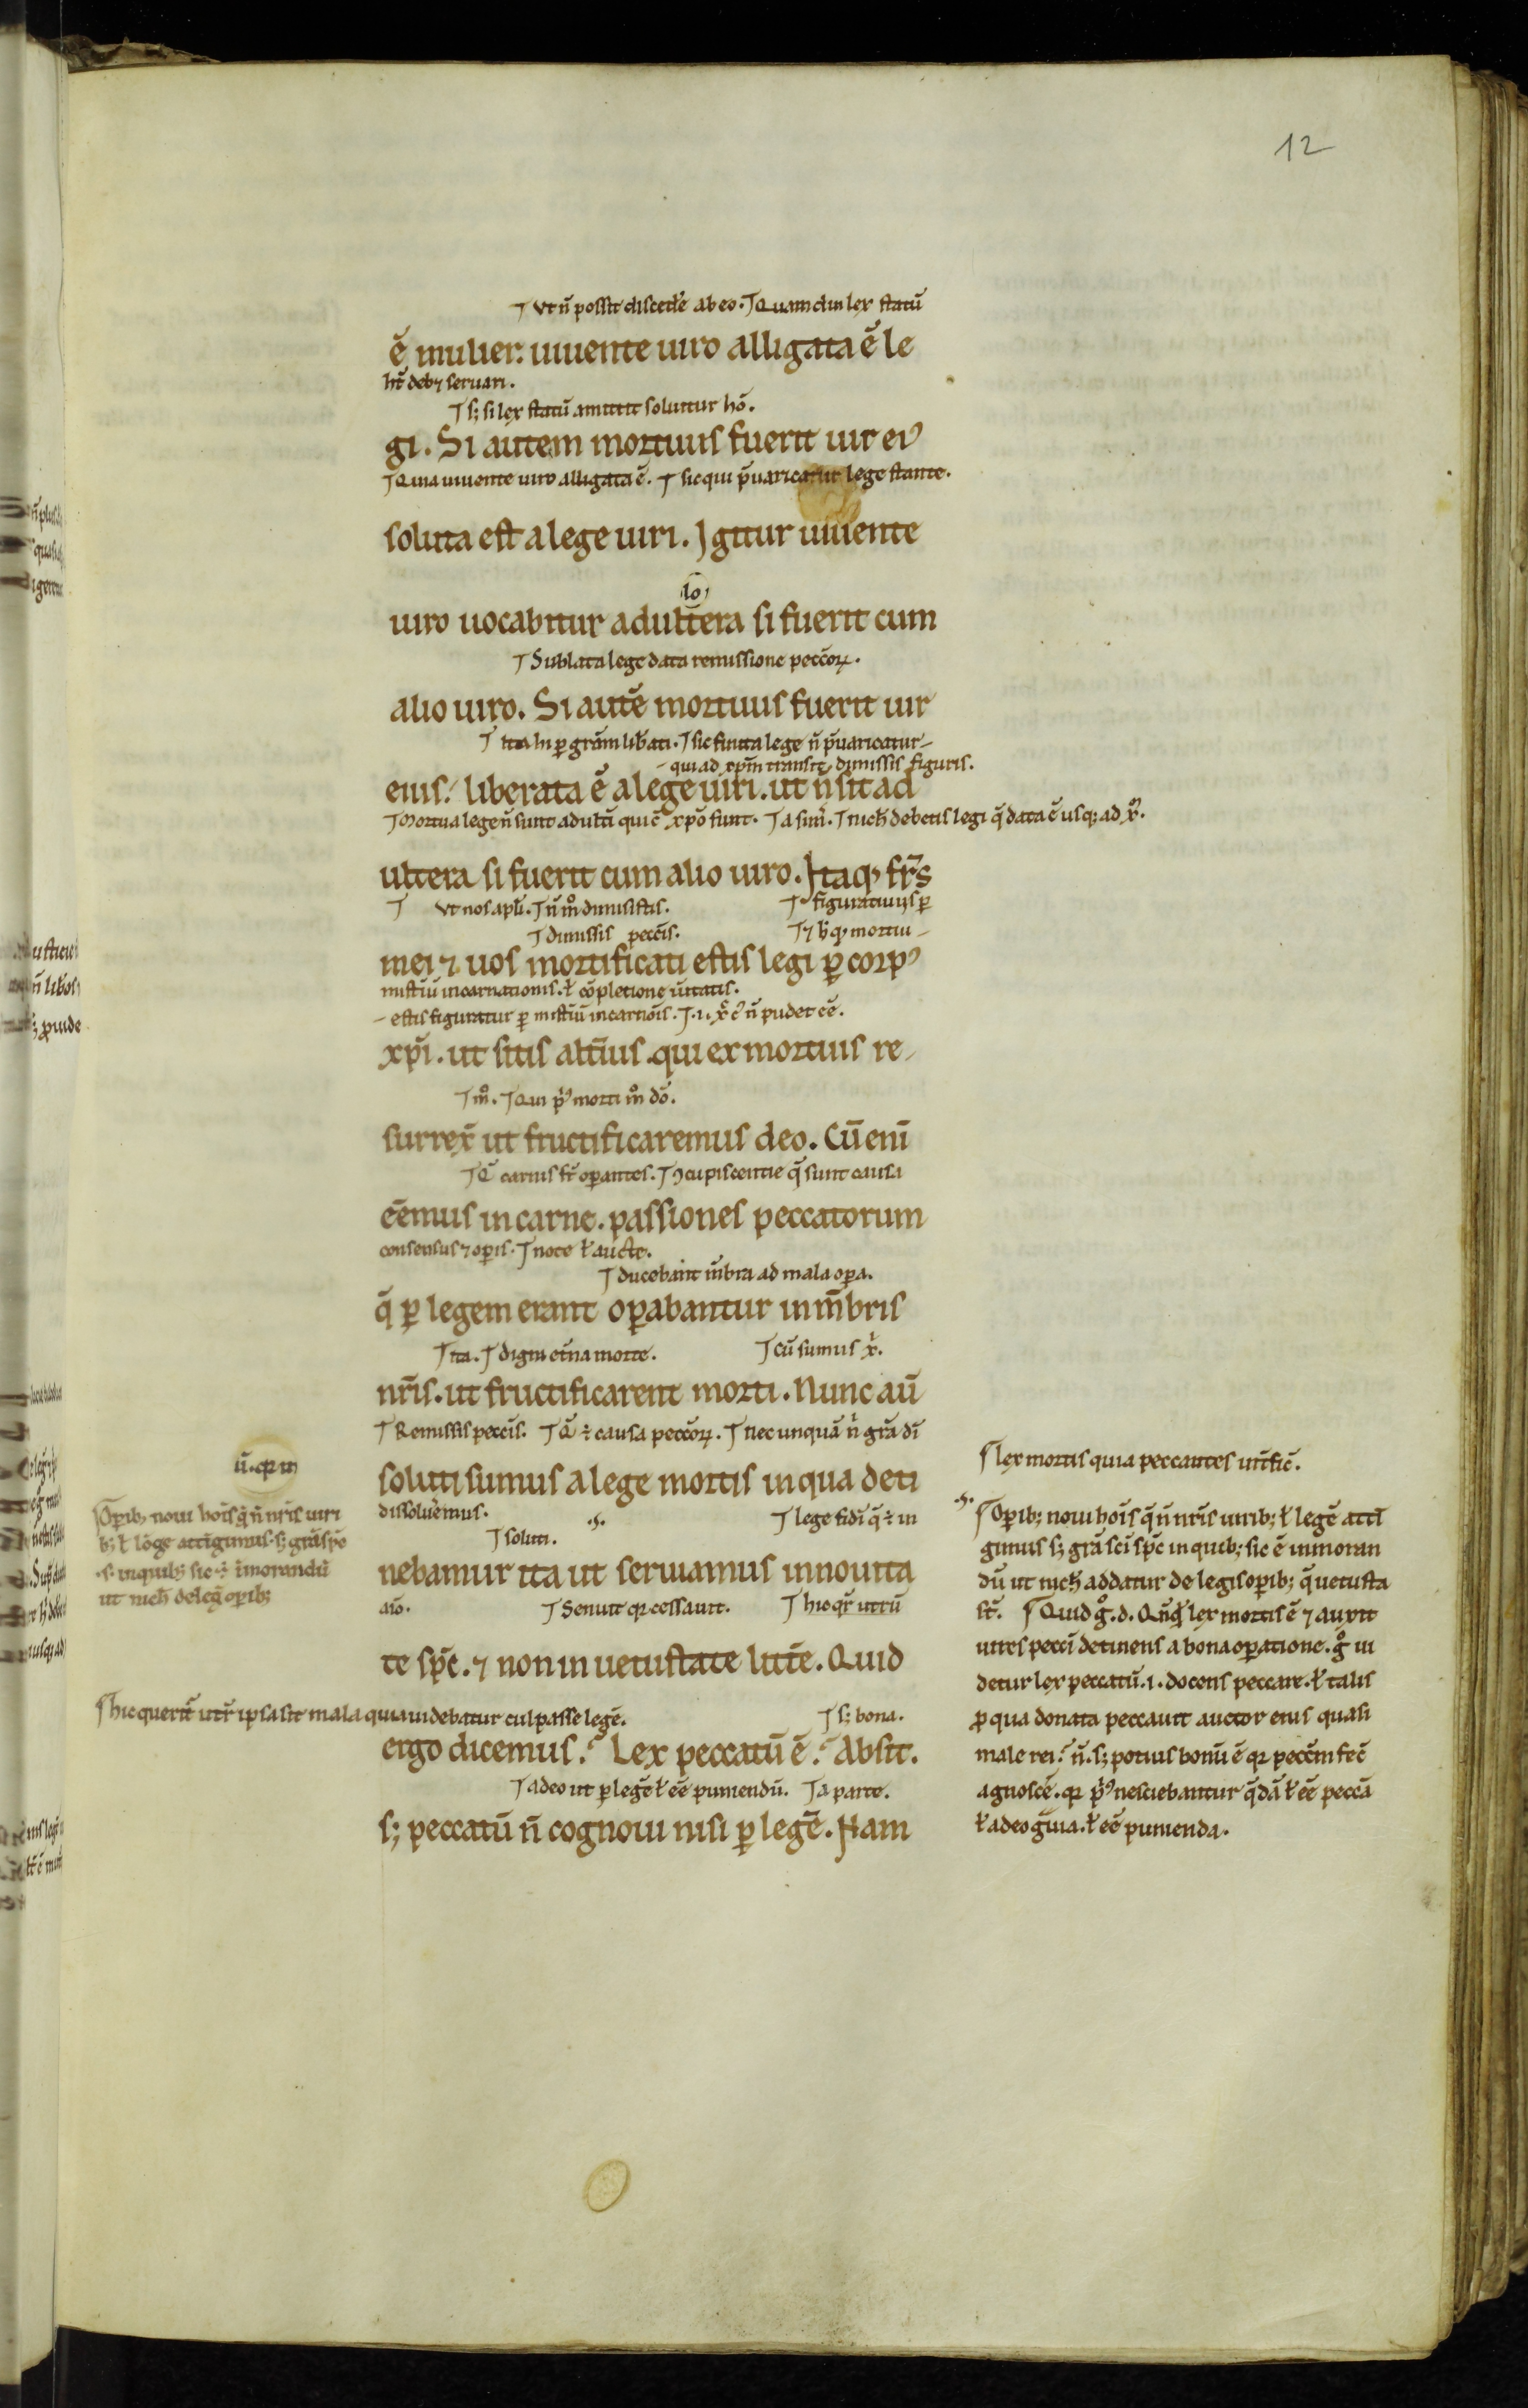 12
⁊ Vt n̄ possit discedẽ ab eo. ⁊ Quamdiu lex statũ
ẽ mulier: uiuente uiro alligata ẽ le
hr̃ debꝫ seruari.
⁊ sꝫ si lex statũ amittit soluitur hõ.
gi. Si autem mortuus fuerit uir eiꝰ
⁊ Quia uiuente uiro alligata ẽ. ⁊ sic qui p̃uaricatur lege stante.
soluta est a lege uiri. Igitur uiuente
uiro uocabitur adultera si fuerit cum
⁊ Sublata lege data remissione peccõꝝ.
alio uiro. Si autẽ mortuus fuerit uir
⁊ ita hi ꝑ grãm lib̃ati. ⁊ sic finita lege n̄ p̃uaricatur
qui ad xp̃m transit, dimissis figuris.
eius: liberata ẽ a lege uiri. ut n̄ sit ad
⁊ Mortua lege n̄ sunt adult̃i qui c̃ xp̃o sunt. ⁊ a simĩ. ⁊ nich̃ debetis legi q̃ data ẽ usqꝫ ad xp̃m.
ultera si fuerit cum alio uiro. Itaqꝫ fr̃s
⁊ Vt nos apl̃i. ⁊ n̄ m̊ dimisistis. ⁊ figuratiuis ꝑ
⁊ dimissis peccĩs. mortui
mei ⁊ uos mortificati estis legi ꝑ corpꝰ
misteriũ incarnationis. ł cõpletione ũitatis.
estis figuratur ꝑ misteriũ incarnõis. n̄ pudet eẽ.
xp̃i. ut sitis alt̃ius qui ex mortuis re
⁊ m̊. ⁊ Qui p̃ꝰ morti m̊ dõ.
surrex̃ ut fructificaremus deo. Cũ enĩ
carnis operantes. ⁊ ꝯcupiscentie q̃ sunt causa
eẽmus in carne. passiones peccatorum
consensus ⁊ oꝑis. ⁊ note ł aucte.
⁊ ducebant m̃bra ad mala oꝑa.
q̃ ꝑ legem erant oꝑabantur in m̃bris
⁊ ita. ⁊ digni et̃na morte. ⁊ cũ sumus xp̃i.
nr̃is. ut fructificarent morti. Nunc aũ
⁊ Remissis peccĩs. ⁊ q̃ ÷ causa peccõꝝ. ⁊ nec unquã n̄ grã dĩ
soluti sumus a lege mortis in qua deti
dissoluẽmus. ⁊ lege fidĩ q̃ ÷ in
⁊ soluti.
nebamur ita ut seruiamus in nouita
aĩo. ⁊ Senuit qꝛ cessauit. ⁊ hic qr̃ utrũ
te sp̃c. ⁊ non in uetustate litt̃e. Quid
⁊ hic querit̃ utr̃ ipsa sit mala quia uidebatur culpasse legẽ. ⁊ sꝫ bona.
ergo dicemus? Lex peccatũ ẽ? Absit.
⁊ adeo ut ꝑ legẽ ł eẽ puniendũ. ⁊ a parte.
sꝫ peccatũ n̄ cognoui nisi ꝑ legẽ. Nam
ũ. qꝛ in
Oꝑibꝫ noui hoĩs q̃ n̄ nr̃is uiri
bꝫ ł lõge attĩgimus. sꝫ grã sp̃c
.s. in quibꝫ sic ÷ ĩmorandũ
ut nich̃ de leg̃ oꝑibꝫ
lex mortis quia peccantes int̃fic̃.
Oꝑibꝫ noui hoĩs q̃ n̄ nr̃is uiribꝫ ł legẽ attĩ
gimus sꝫ grã sc̃i sp̃c in quibꝫ sic ẽ inmoran
dũ ut nich̃ addatur de legis oꝑibꝫ q̃ uetusta
st̃. Quid g̊.d. Qñq̃ lex mortis ẽ ⁊ auxit
uires peccĩ detinens a bona oꝑatione. g̊ ui
detur lex peccatũ. i. docens peccare. ł talis
ꝓ qua donata peccauit auctor eius quasi
male rei? n̄. sꝫ potius bonũ ẽ qꝛ peccm̃ fec̃
agnoscẽ. qꝛ p̃ꝰ nesciebantur q̃dã ł eẽ peccã
ł adeo g̃uia. ł eẽ punienda.